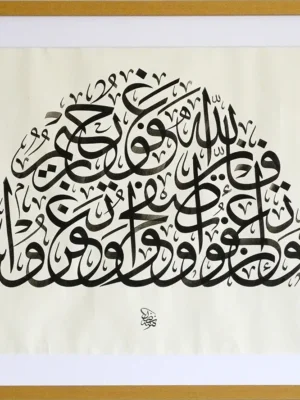 وَإِنْ تَعْفُوا وَتَصْفَحُوا وَتَغْفِرُوا
فَإِنَّ اللَّهَ غَفُورٌ رَحِيمٌ